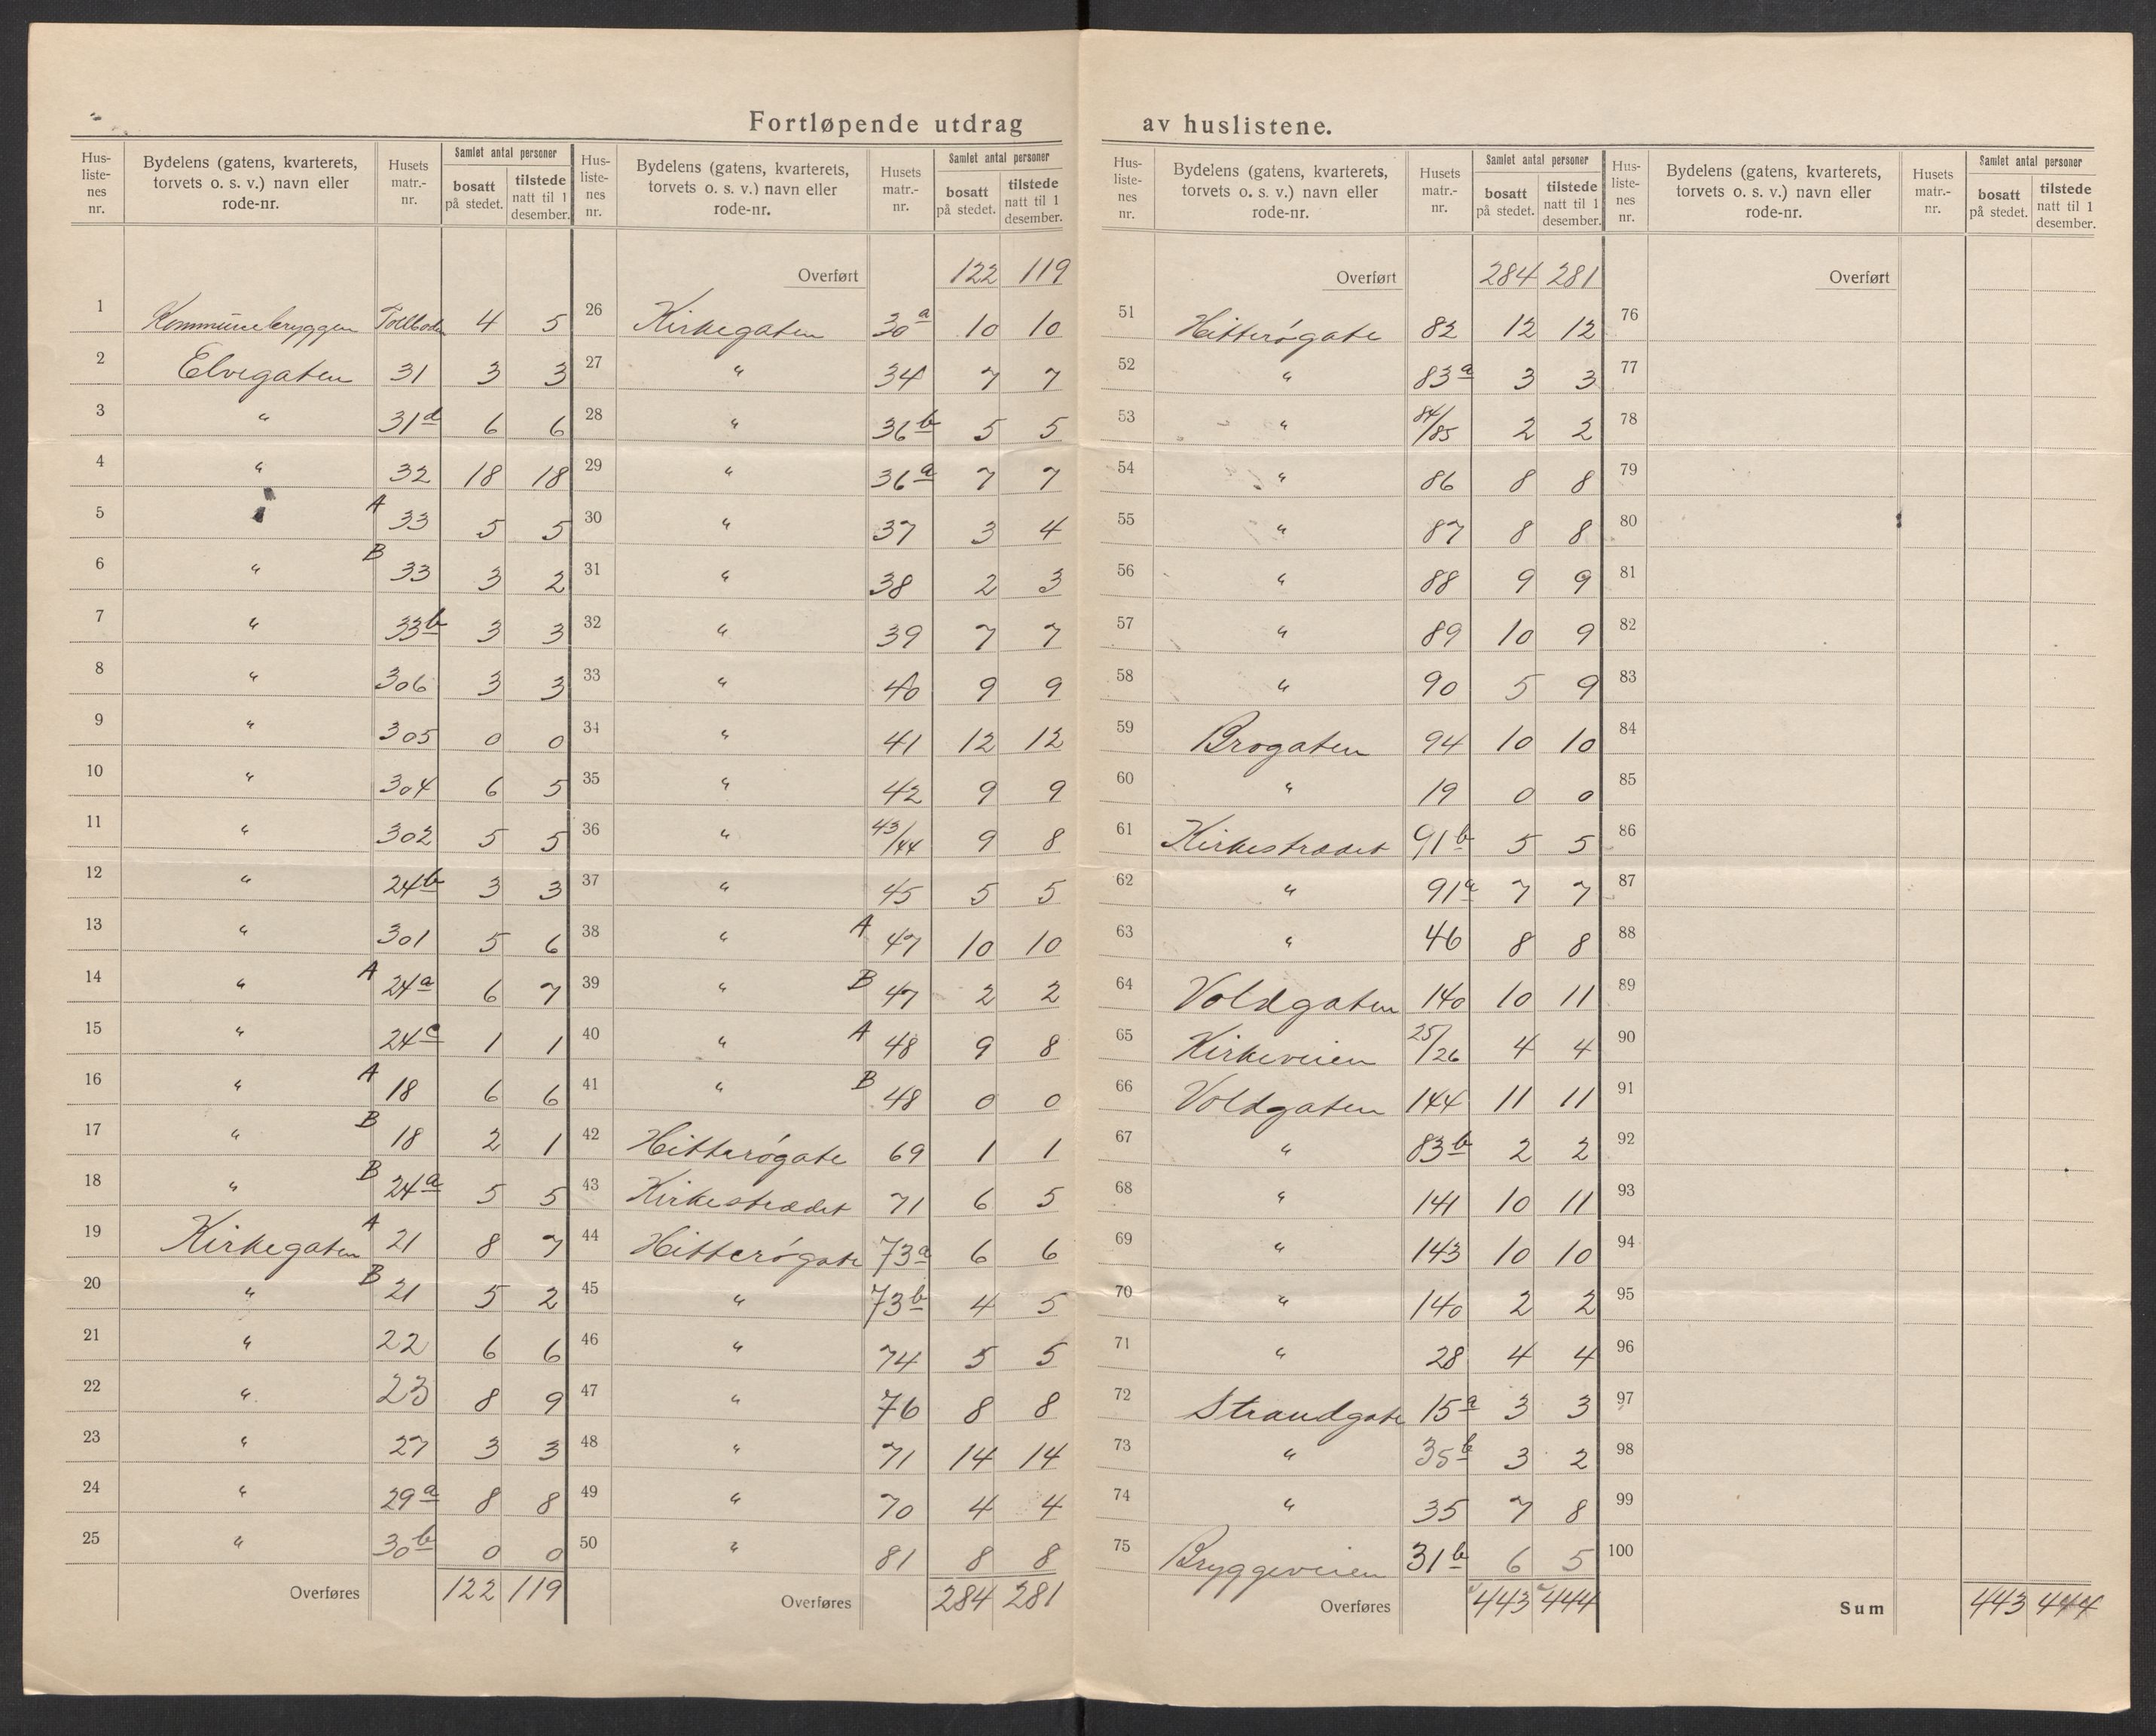 Fortløpende utdrag av huslistene.
Hus-listenes nr. | Bydelens (gatens, kvarterets, torvets o. s. v.) navn eller rode-nr. | Husets matr.-nr. | Samlet antal personer bosatt på stedet. | tilstede natt til 1 desember.
1 Kommunebryggen Tollboden 4 5
2 Elvegaten 31 3 3
3 " 31d 6 6
4 " 32 18 18
5 " A 33 5 5
6 " B 33 3 2
7 " 33b 3 3
8 " 306 3 3
9 " 305 0 0
10 " 304 6 5
11 " 302 5 5
12 " 24b 3 3
13 " 301 5 6
14 " A 24a 6 7
15 " 24c 1 1
16 " A 18 6 6
17 " B 18 2 1
18 " B 24a 5 5
19 Kirkegaten A 21 8 7
20 " B 21 5 2
21 " 22 6 6
22 " 23 8 9
23 " 27 3 3
24 " 29a 8 8
25 " 30b 0 0
Overføres 122 119
Hus-listenes nr. | Bydelens (gatens, kvarterets, torvets o. s. v.) navn eller rode-nr. | Husets matr.-nr. | Samlet antal personer bosatt på stedet. | tilstede natt til 1 desember.
Overført 122 119
26 Kirkegaten 30a 10 10
27 " 34 7 7
28 " 36b 5 5
29 " 36a 7 7
30 " 37 3 4
31 " 38 2 3
32 " 39 7 7
33 " 40 9 9
34 " 41 12 12
35 " 42 9 9
36 " 43/44 9 8
37 " 45 5 5
38 " A 47 10 10
39 " B 47 2 2
40 " A 48 9 8
41 " B 48 0 0
42 Hitterøgate 69 1 1
43 Kirkestrædet 71 6 5
44 Hitterøgate 73a 6 6
45 " 73b 4 5
46 " 74 5 5
47 " 76 8 8
48 " 71 14 14
49 " 70 4 4
50 " 81 8 8
Overføres 284 281
Hus-listenes nr. | Bydelens (gatens, kvarterets, torvets o. s. v.) navn eller rode-nr. | Husets matr.-nr. | Samlet antal personer bosatt på stedet. | tilstede natt til 1 desember.
Overført 284 281
51 Hitterøgate 82 12 12
52 " 83a 3 3
53 " 84/85 2 2
54 " 86 8 8
55 " 87 8 8
56 " 88 9 9
57 " 89 10 9
58 " 90 5 9
59 Brogaten 94 10 10
60 " 19 0 0
61 Kirkestrædet 91b 5 5
62 " 91a 7 7
63 " 46 8 8
64 Voldgaten 140 10 11
65 Kirkeveien 25/26 4 4
66 Voldgaten 144 11 11
67 " 83b 2 2
68 " 141 10 11
69 " 143 10 10
70 " 140 2 2
71 " 28 4 4
72 Strandgate 15a 3 3
73 " 35b 3 2
74 " 35 7 8
75 Bryggeveien 31b 6 5
Overføres 443 444
Hus-listenes nr. | Bydelens (gatens, kvarterets, torvets o. s. v.) navn eller rode-nr. | Husets matr.-nr. | Samlet antal personer bosatt på stedet. | tilstede natt til 1 desember.
Overført
76
77
78
79
80
81
82
83
84
85
86
87
88
89
90
91
92
93
94
95
96
97
98
99
100
Sum 443 444